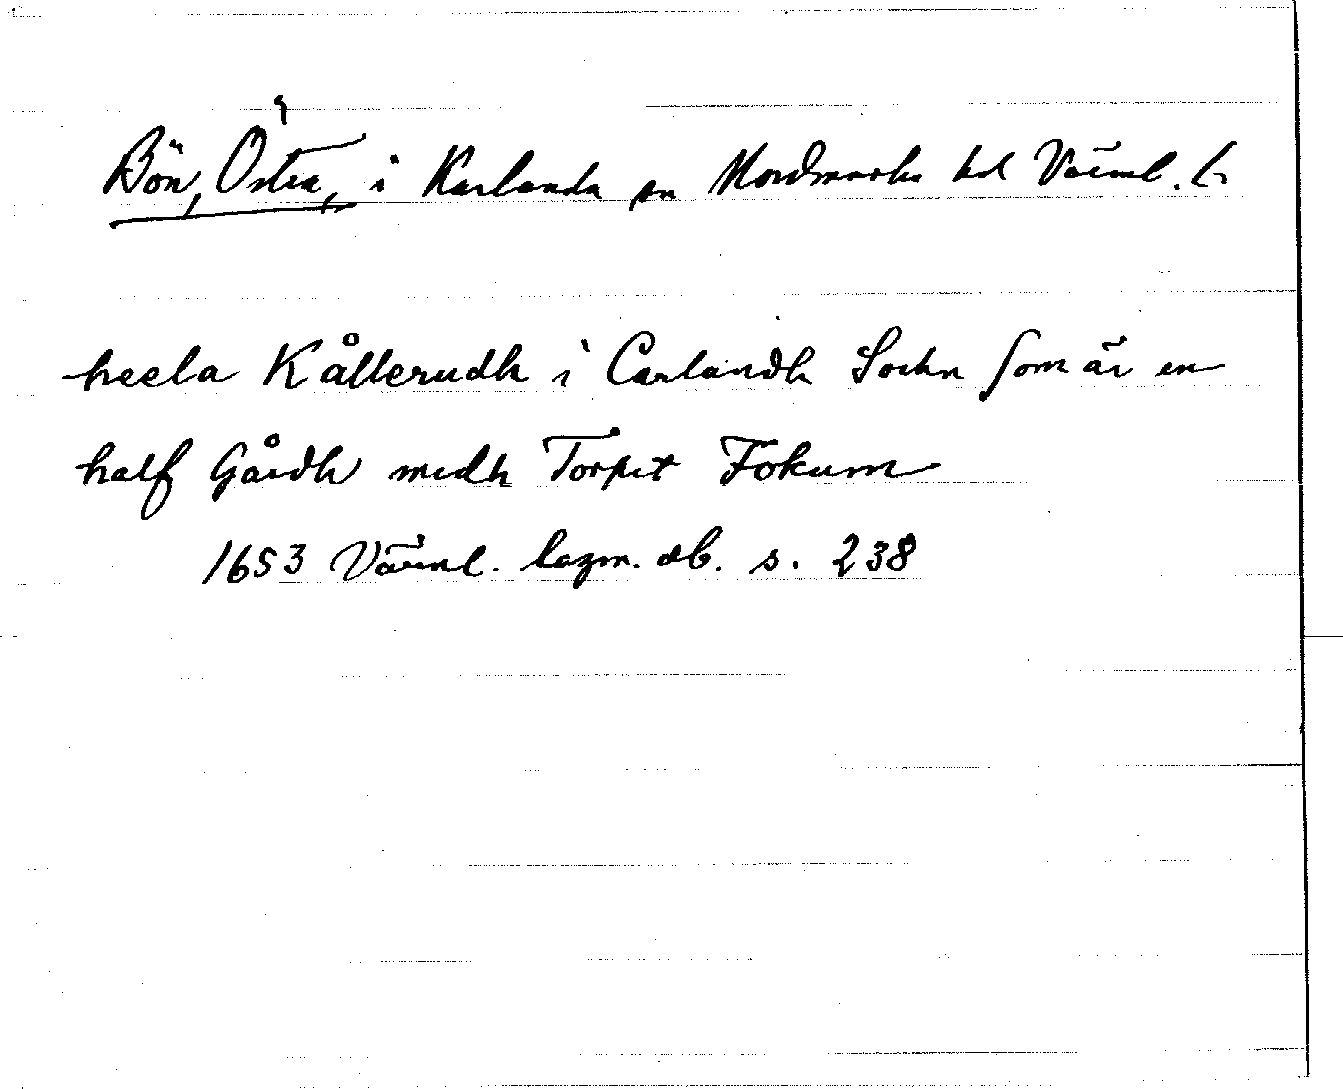 Bön, Östra, i Karlanda sn Nordmarks hd Värml. l.
heela Kållerudh i Carlandh Sochn som är en
half Gårdh medh Torpet Fokum
1653 Värml. lagm. db. s. 238